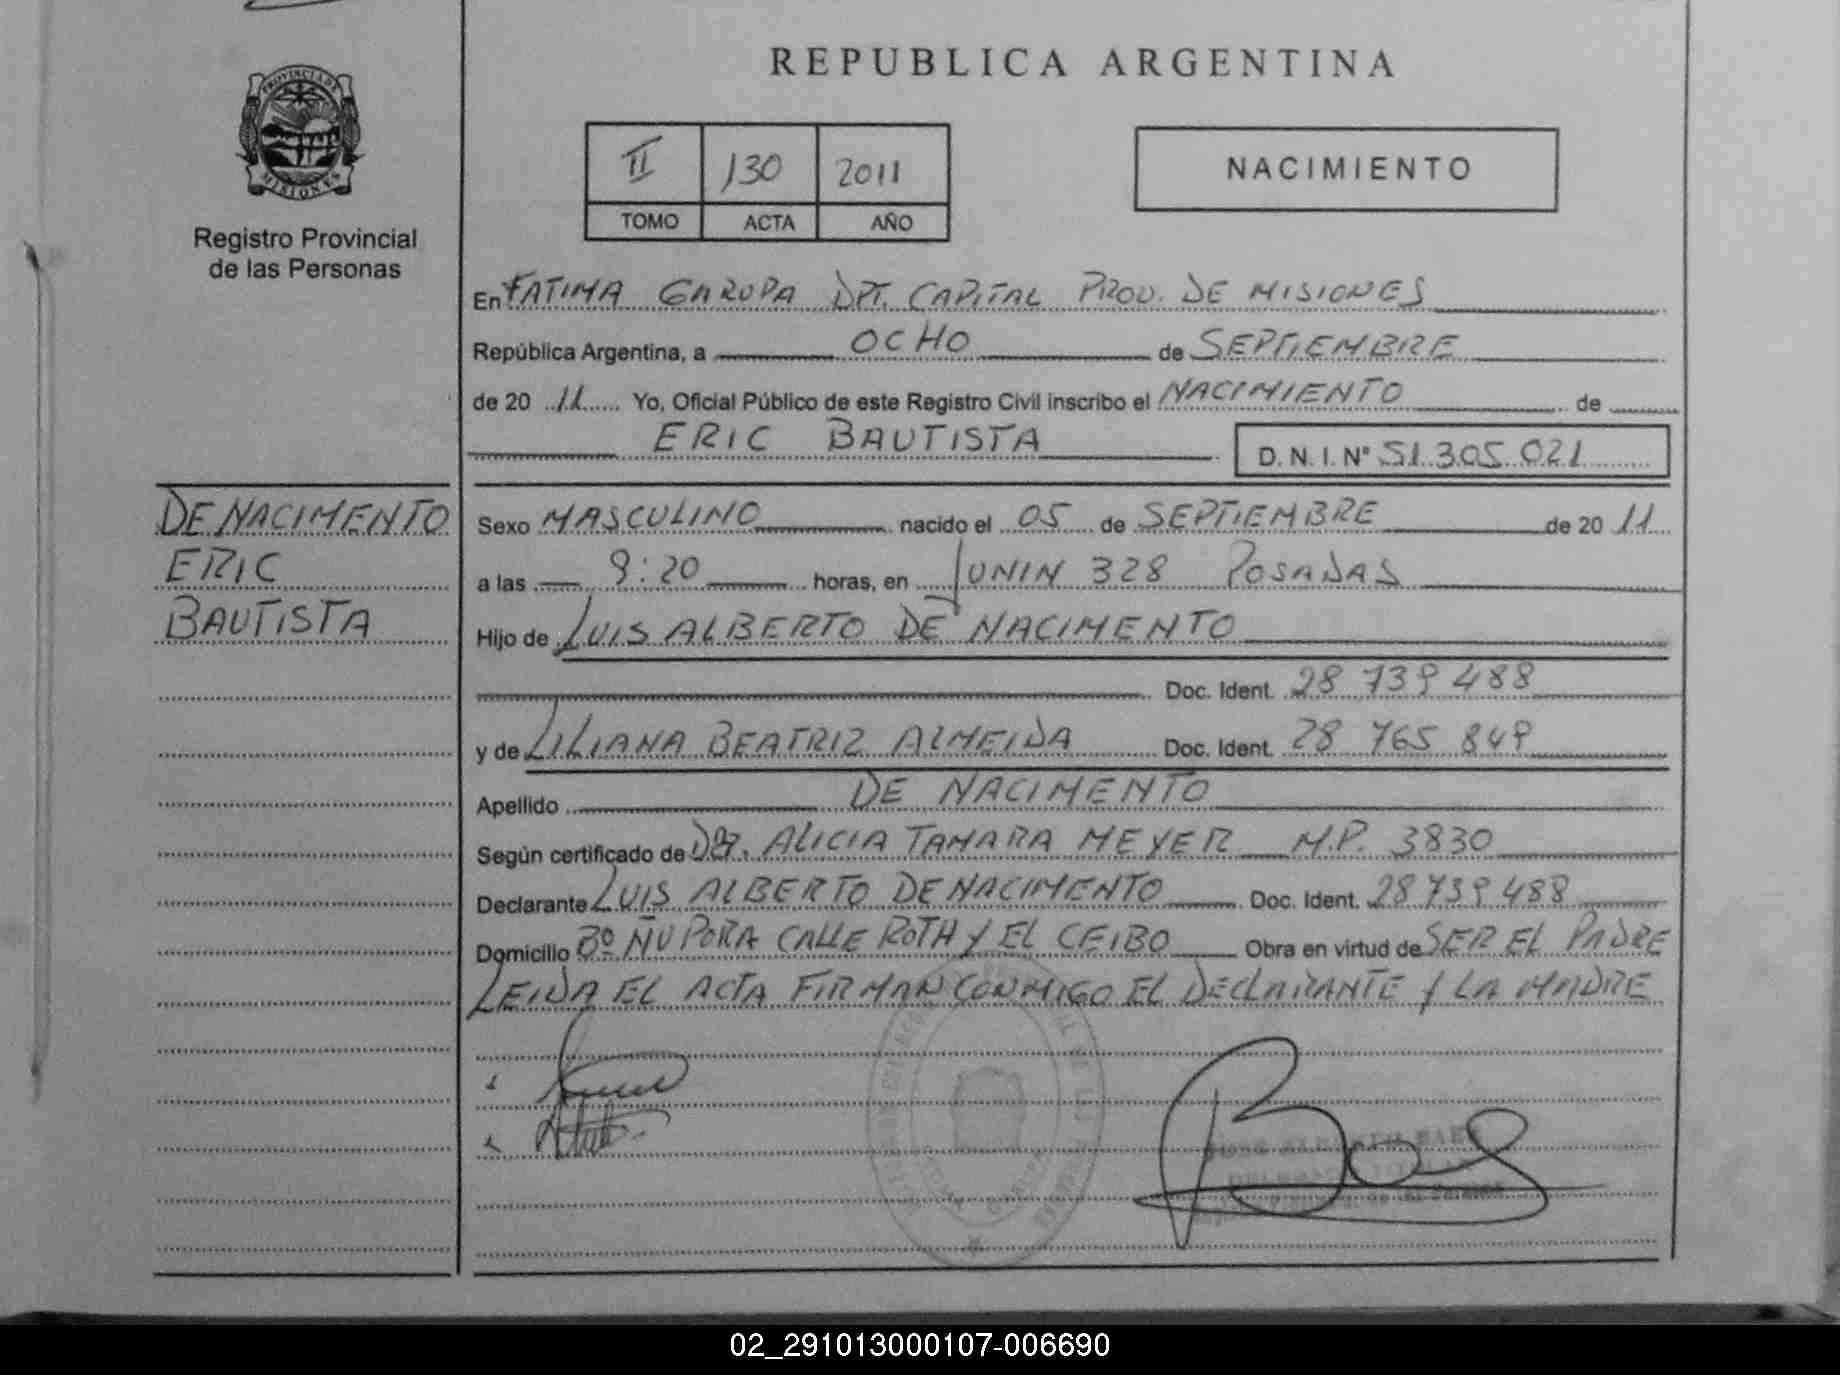 PROVINCIA DE
MISIONES
Registro Provincial
de las Personas
REPUBLICA ARGENTINA
II 130 2011
TOMO ACTA AÑO
NACIMIENTO
En FATIMA GARUPA DPT. CAPITAL PROV. DE MISIONES
República Argentina, a OCHO de SEPTIEMBRE
de 20 11 Yo, Oficial Público de este Registro Civil inscribo el NACIMIENTO de
ERIC BAUTISTA D. N. I. N° 51.305.021
DE NACIMENTO
ERIC
BAUTISTA
Sexo MASCULINO nacido el 05 de SEPTIEMBRE de 20 11
a las 9:20 horas, en JUNIN 328 POSADAS
Hijo de LUIS ALBERTO DE NACIMENTO
Doc. Ident. 28 739 488
y de LILIANA BEATRIZ ALMEIDA Doc. Ident. 28 765 849
Apellido DE NACIMENTO
Según certificado de DRA. ALICIA TAMARA MEYER M.P. 3830
Declarante LUIS ALBERTO DE NACIMENTO Doc. Ident. 28 739 488
Domicilio Bº ÑU PORA CALLE ROTH Y EL CEIBO Obra en virtud de SER EL PADRE
LEIDA EL ACTA FIRMAN CONMIGO EL DECLARANTE Y LA MADRE
02_291013000107-006690